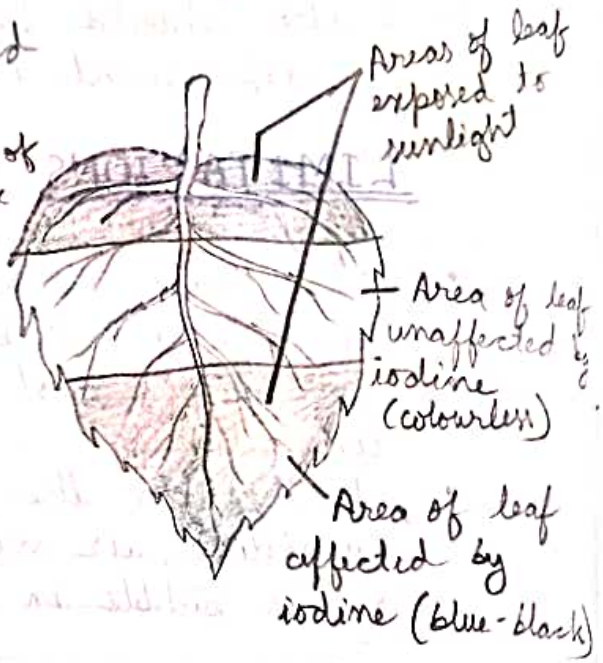 d
of
Areas of leaf
exposed to
sunlight
Area of leaf
unaffected by
iodine
(colourless)
Area of leaf
affected by
iodine (blue-black)